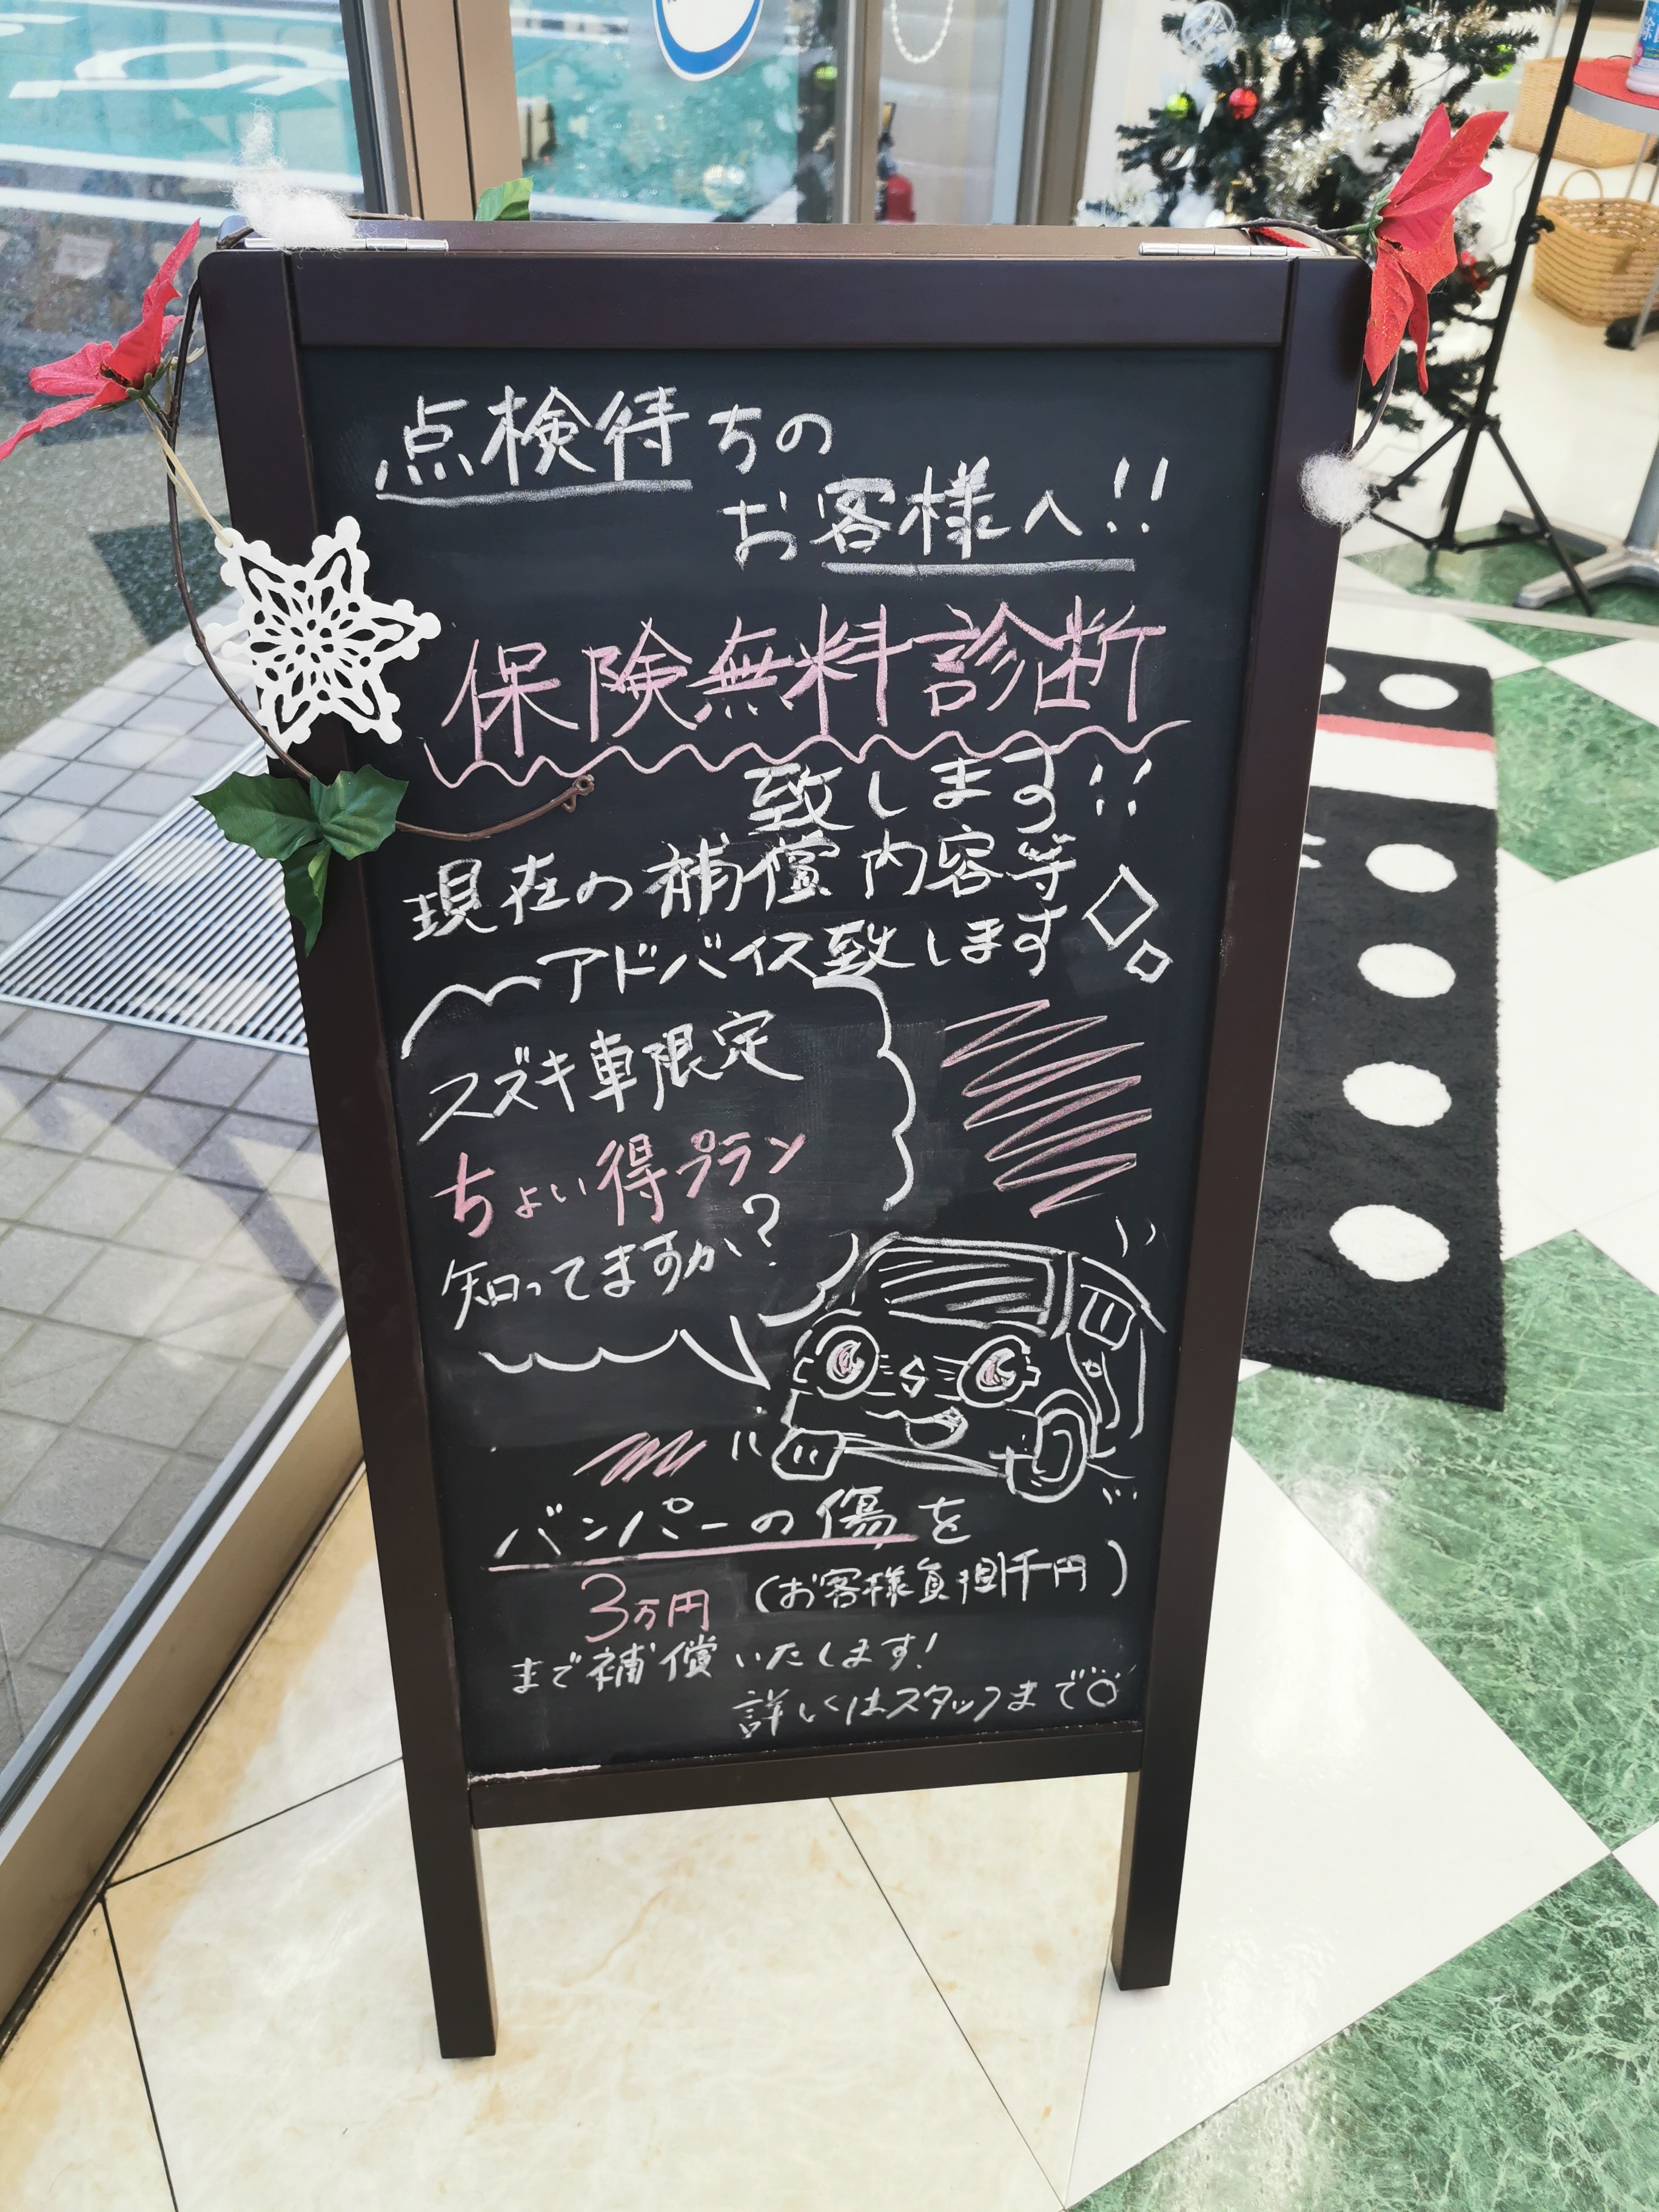 点検待ちの
お客様へ!!
保険無料診断
致します!!
現在の補償内容等
アドバイス致します
スズキ車限定
ちょい得プラン
知ってますか?
バンパーの傷を
3万円(お客様負担千円)
まで補償いたします!
詳しくはスタッフまで